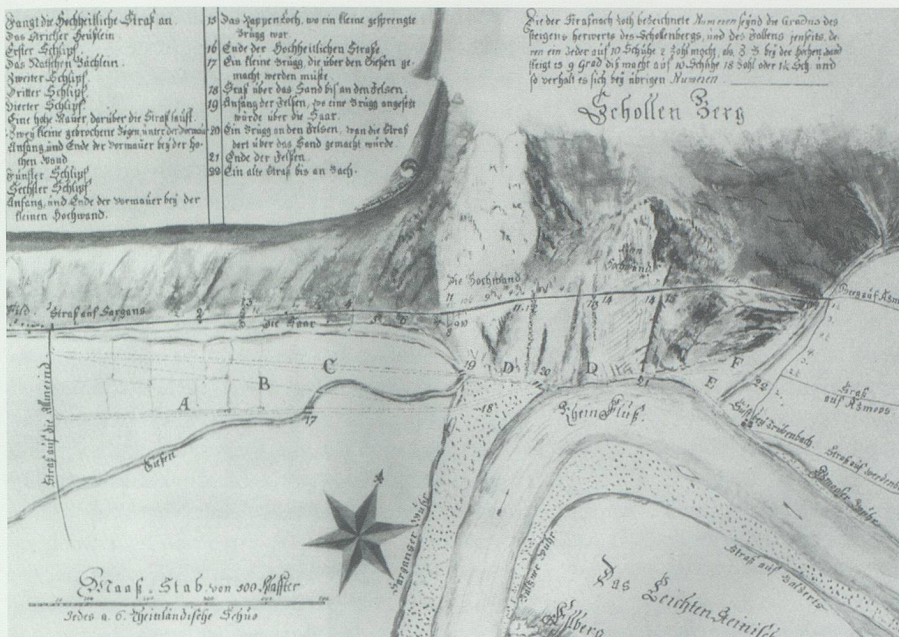 Fangt die Hochheitliche Straß an
Das Atscher Heüslein
Erster Schlipf.
Das Nätschen Bächlein.
Zweiter Schlipf
Dritter Schlipf
Vierter Schlipf
Eine hohe Mauer, darüber die Straß lauft.
Zwey kleine gebrochene Bogen, unter der Vormaur
Anfang und Ende der Vormauer bey der ho-
hen Wand
Fünfter Schlipf
Sechster Schlipf
Anfang, und Ende der Vormauer bey der
kleinen Hochwand.
15 Das Rappenloch, wo ein kleine gesprengte
Brügg war
16 Ende der Hochheitlichen Straße
17 Ein kleine Brügg, die über den Gießen ge-
macht werden müßte
18 Straß über das Sand bis an den Felsen.
19 Anfang der Felsen, wo eine Brügg angesetzt
würde über die Saar.
20 Ein Brügg an den Felsen, wan die Straß
dort über das Sand gemacht würde.
21 Ende der Felsen.
22 Ein alte Straß bis an Bach.
Die der Straß nach Roth bezeichnete Numeren seynd die Gradus des
steigens herwerts des Schollenbergs, und des Fallens jenseits, de-
ren ein Jeder auf 10 Schuhe 2 Zohl macht, als Z. B. bey der hohen wand
steigt es 9 Grad diß macht auf 10 Schuhe 18 Zohl oder 1½ Sch. und
so verhalt es sich bey übrigen Numeren.
Schollen Berg
Die Hochwand
Klein
Hochwand
Straß auf Sargans
Die Saar
Straß auf die Allmeind
A B C D D E F
19 20 21 22
18
17
Gießen
Rhein Fluß.
Straß auf Aßmoos
Straß auf Werdenberg
Sarganser Wuhr
Straß auf Balzers
Das Leichten Steinische
Ellberg
Maaß-Stab von 300 Klaffter
Jedes a. 6. Rheinländische Schuo